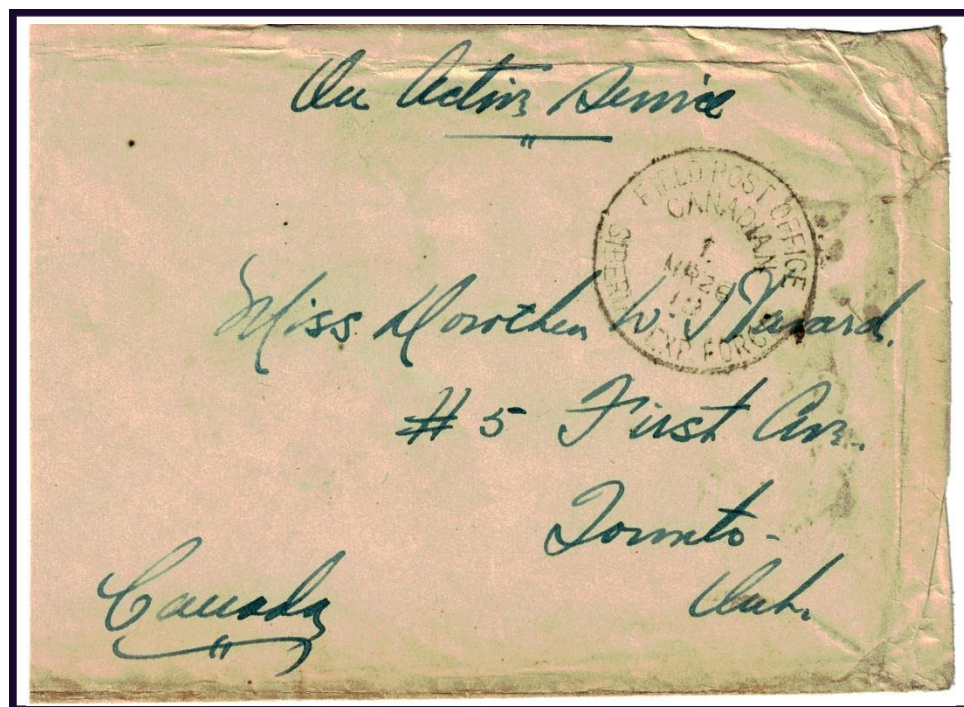 On Active Service
FIELD POST OFFICE
CANADIAN
1
MR 26
19
SIBERIAN EXP. FORCE
Miss Dorothea W.
# 5 First Ave.
Toronto -
Ont.
Canada